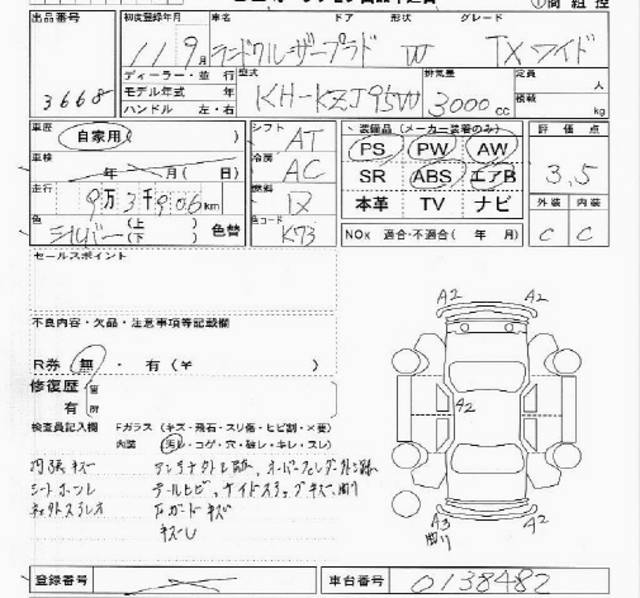 ①問 組 控
出品番号 初度登録年月 車名 ドア 形状 グレード
3668 11 9月 ランドクルーザープラド W TX ワイド
ディーラー・並 行 型式 排気量 定員 人
モデル年式 年 KH-KZJ95W 3000cc 積載 kg
ハンドル 左・右
車歴 自家用( ) シフト AT 装備品 (メーカー装着のみ) 評 価 点
車検 年 月( 日) 冷房 AC PS PW AW 3.5
走行 9万3千906km 燃料 SR ABS エアB 外装 内装
色 シルバー (上 ) (下 ) 色替 色コード K73 本革 TV ナビ C C
NOx 適合・不適合( 年 月)
セールスポイント
不良内容・欠品・注意事項等記載欄
R券 無 ・ 有 (¥ )
修復歴 箇
有 所
検査員記入欄 Fガラス (キズ・飛石・スリ傷・ヒビ割・×要)
内装 (汚レ・コゲ・穴・破レ・キレ・スレ)
内張キズ
シートホツレ テールヒビ、サイドステップキズ、凹リ
ガードキズ
キズU
A2 A2
A2
A3 A2
凹リ
登録番号 車台番号 0138482